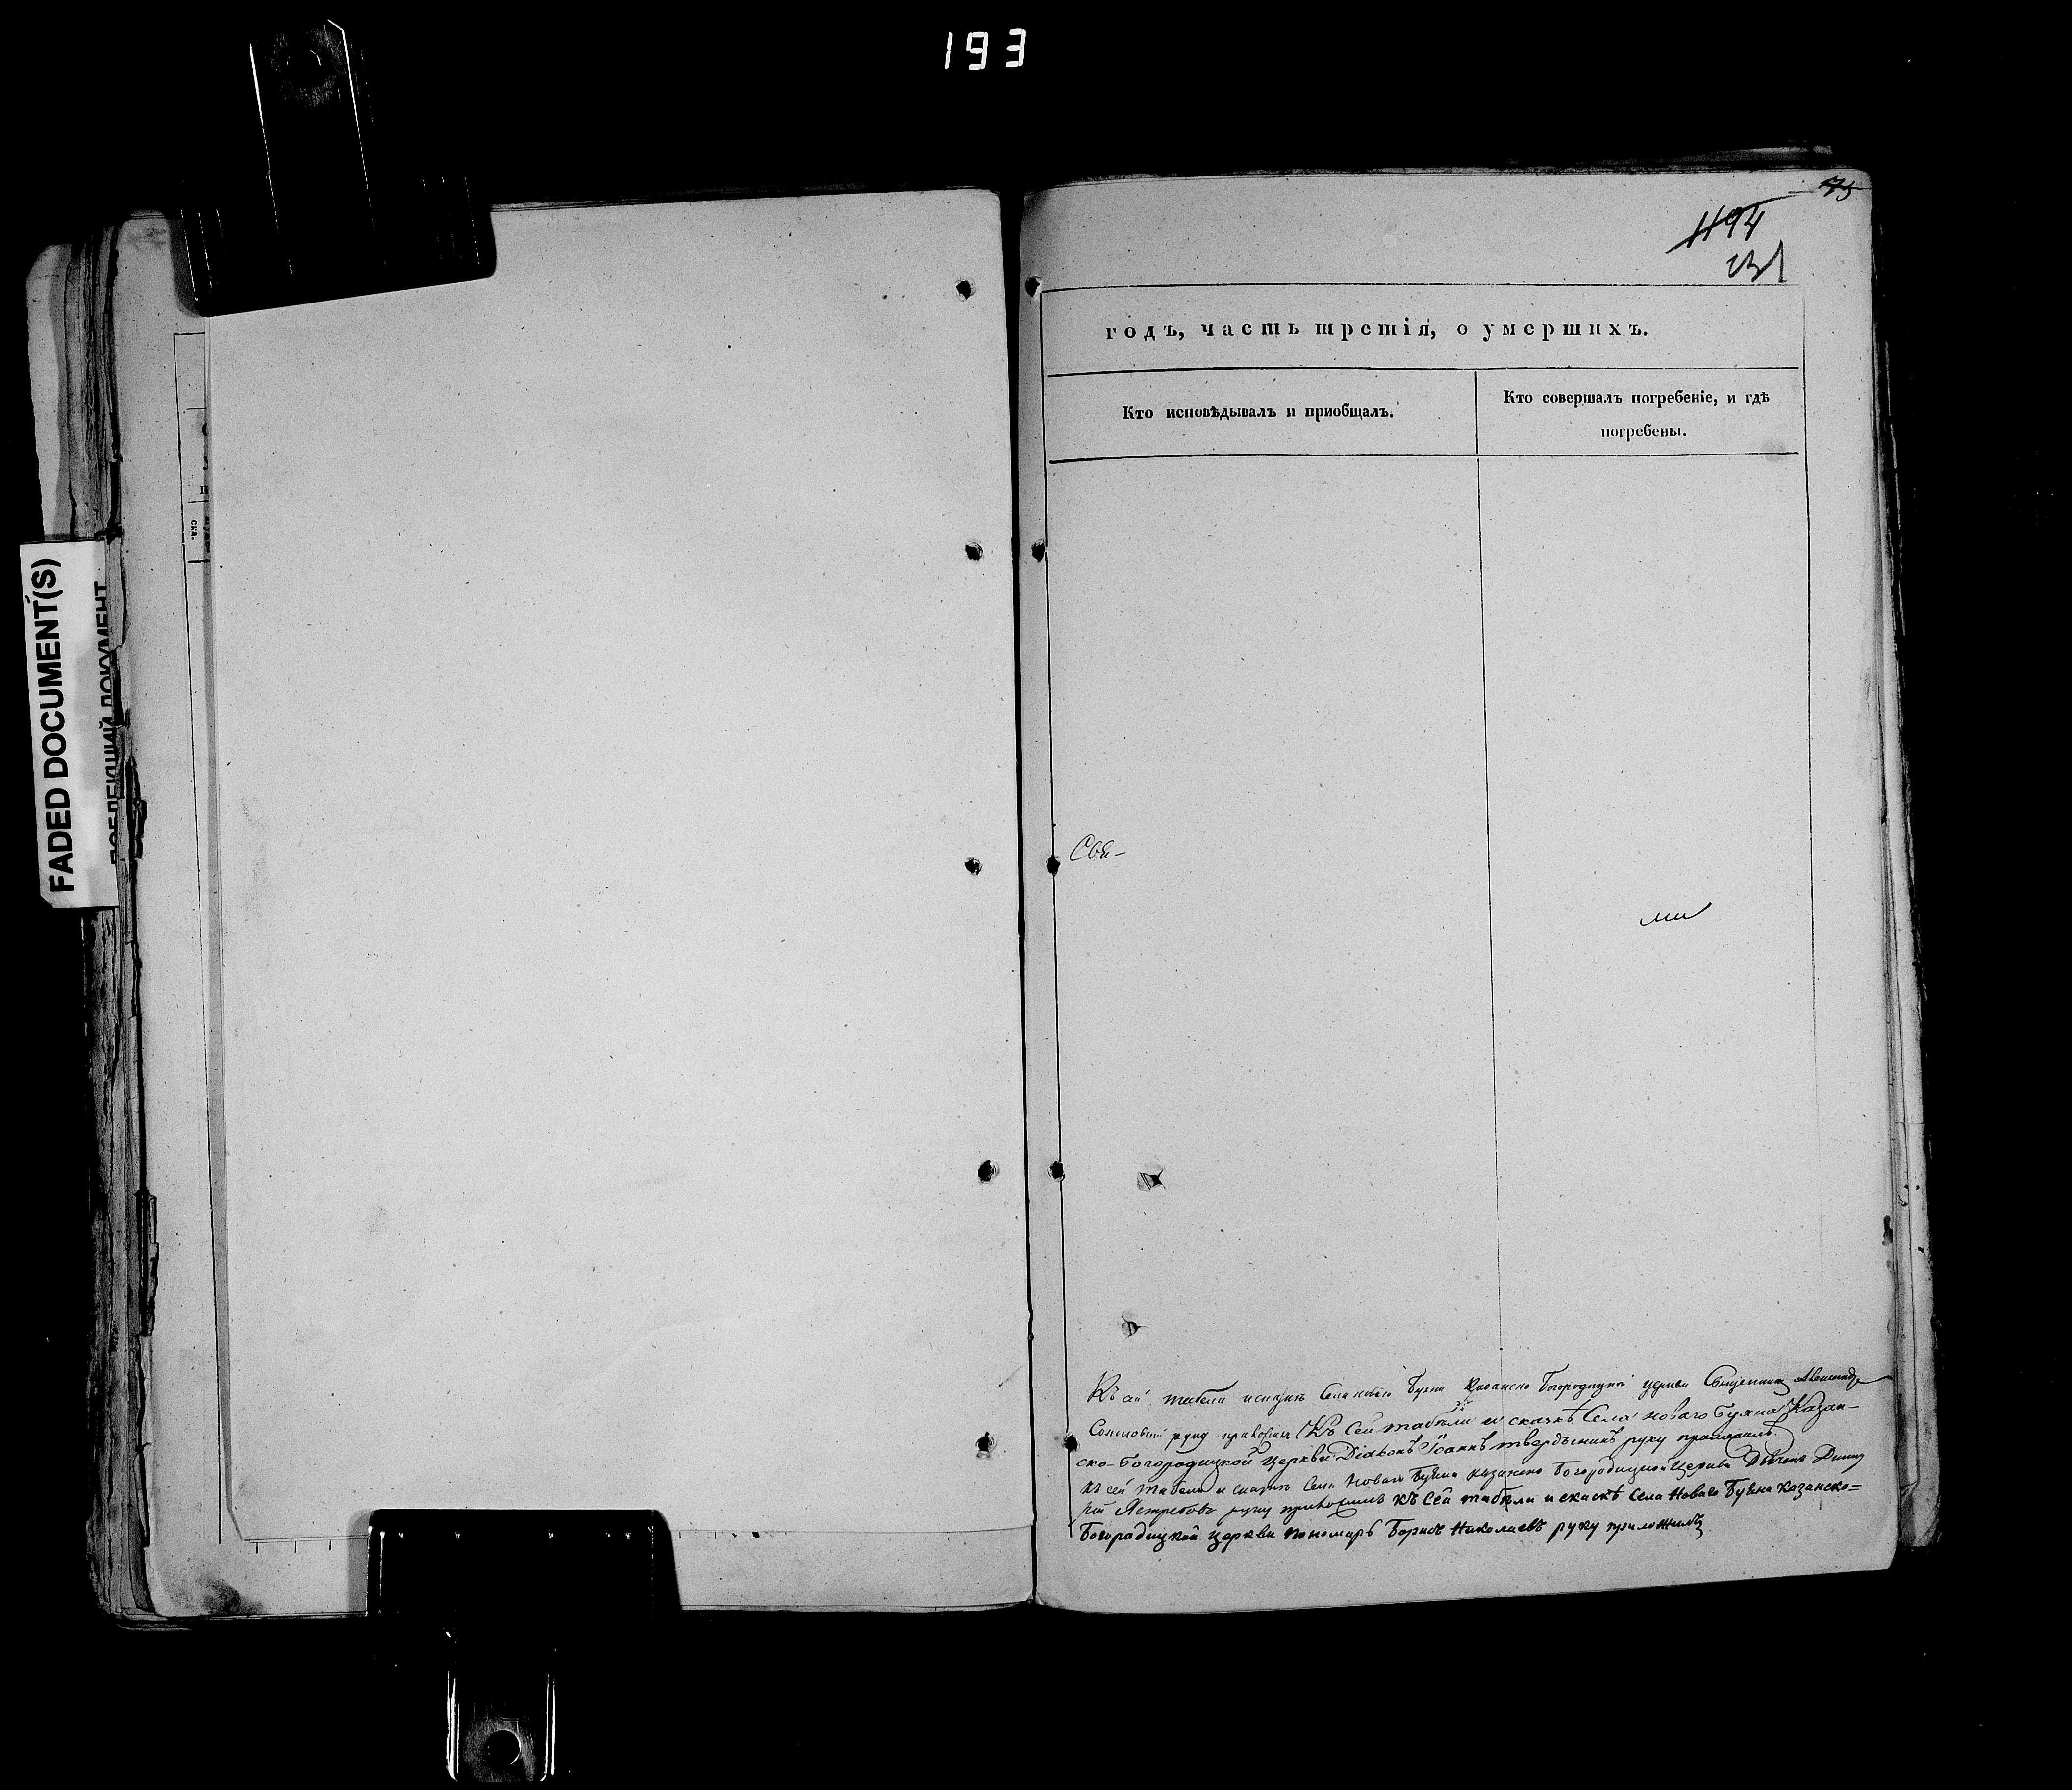 193
75
1194
231
годъ, часть третія, о умершихъ.
Кто исповѣдывалъ и приобщалъ.
Кто совершалъ погребеніе, и гдѣ
погребены.
ска.
FADED DOCUMENT(S)
ПОБЛЕКШИЙ ДОКУМЕНТ
Свя-
ми
Къ сей табели и сказкѣ Села Новаго Буяна Казанско Богородицкой церкви Священникъ
руку приложилъ Къ Сей табѣли и сказкѣ Села Новаго Буяна Казан-
ско-Богородицкой Церкви Діаконъ Іоаннъ руку приложилъ.
Къ сей табели и сказкѣ Села Новаго Буяна Казанско Богородицкой Церкви Дьячекъ Дмит
рій Ястребовъ руку приложилъ Къ Сей табѣли и скаскѣ Села Новаго Буяна Казанско=
Богорадицкой церкви пономарь Борисъ Николаевъ руку приложилъ